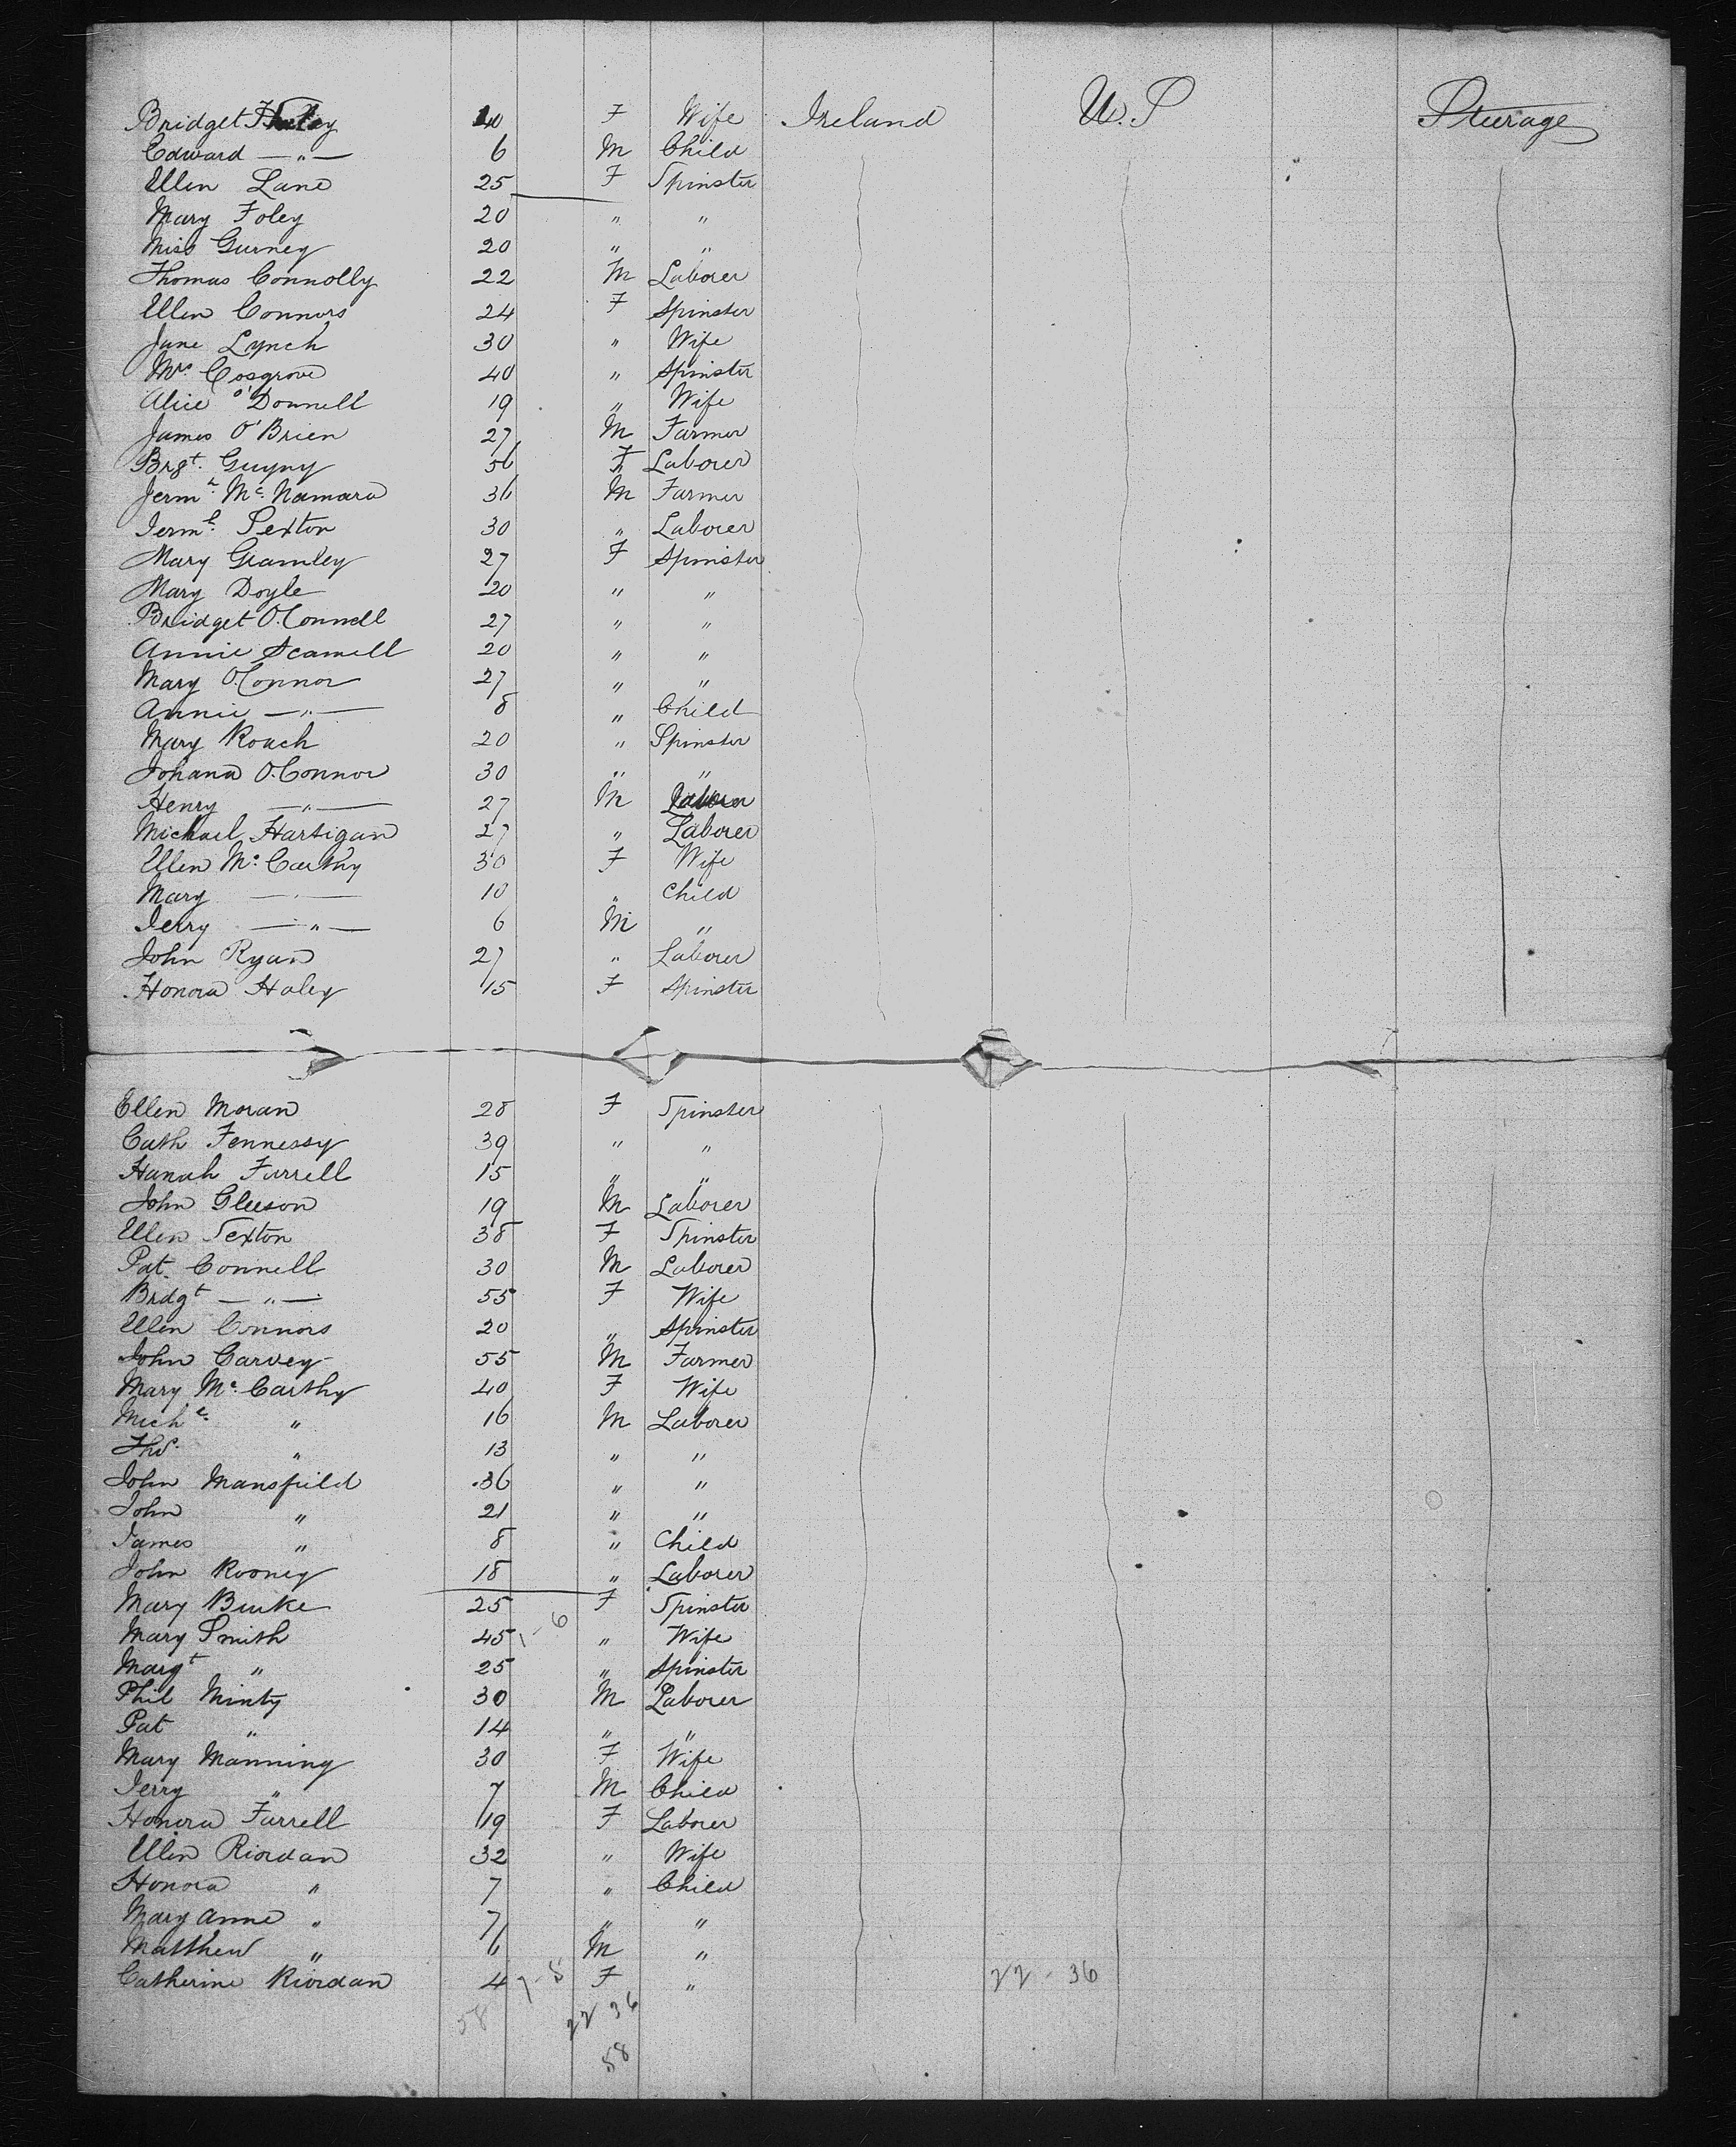 Bridget Haley 40 F Wife Ireland U.S Sturage
Edward — " — 6 M Child
Ellen Lane 25 F Spinster
Mary Foley 20 " "
Miss Gurney 20 " "
Thomas Connolly 22 M Laborer
Ellen Connors 24 F Spinster
Jane Lynch 30 " Wife
Mrs. Cosgrove 40 " Spinster
Alice O'Donnell 19 " Wife
James O'Brien 27 M Farmer
Brgt. Guyny 56 F Laborer
Jermh. Mc. Namara 36 M Farmer
Jermh. Sexton 30 " Laborer
Mary Gramley 27 F Spinster
Mary Doyle 20 " "
Bridget O.Connell 27 " "
Annie Scamell 20 " "
Mary O.Connor 27 " "
Annie — " — 8 " Child
Mary Roach 20 " Spinster
Johana O.Connor 30 " "
Henry — " — 27 M Laborer
Michael Hartigan 27 " Laborer
Ellen Mc. Carthy 30 F Wife
Mary — " — 10 " Child
Jerry — " — 6 M "
John Ryan 27 " Laborer
Honora Haley 15 F Spinster
Ellen Moran 28 F Spinster
Cath Fennessy 39 " "
Hanah Farrell 15 " "
John Gleeson 19 M Laborer
Ellen Sexton 38 F Spinster
Pat. Connell 30 M Laborer
Brdgt — " — 55 F Wife
Ellen Connors 20 " Spinster
John Carvey 55 M Farmer
Mary Mc. Carthy 40 F Wife
Michl. " 16 M Laborer
Ths. " 13 " "
John Mansfield 36 " "
John " 21 " "
James " 8 " Child
John Rooney 18 " Laborer
Mary Burke 25 F Spinster
Mary Smith 45 1-6 " Wife
Margt " 25 " Spinster
Phil Minty 30 M Laborer
Pat " 14 " "
Mary Manning 30 F Wife
Jerry " 7 M Child
Honora Farrell 19 F Laborer
Ellen Riordan 32 " Wife
Honora " 7 " Child
Mary Anne " 7 " "
Matthew " 6 M "
Catherine Riordan 4 7-5 F " 22-36
58 22 36
58